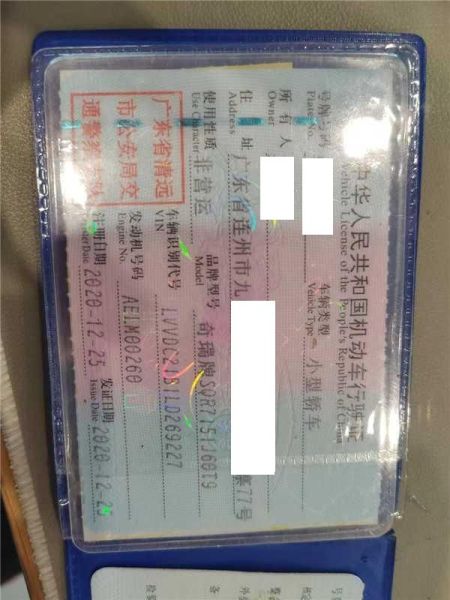 中华人民共和国机动车行驶证
Vehicle License of the People's Republic of China
号牌号码
Plate No.
车辆类型
Vehicle Type
小型轿车
所有人
Owner
住址
Address
广东省连州市九
寨77号
使用性质
Use Character
非营运
品牌型号
Model
奇瑞牌SQR7151J60T9
广东省清远
市公安局交
通警察支队
车辆识别代号
VIN
LVVDC21B1LD269227
发动机号码
Engine No.
AELM00260
注册日期
Register Date
2020-12-25
发证日期
Issue Date
2020-12-25